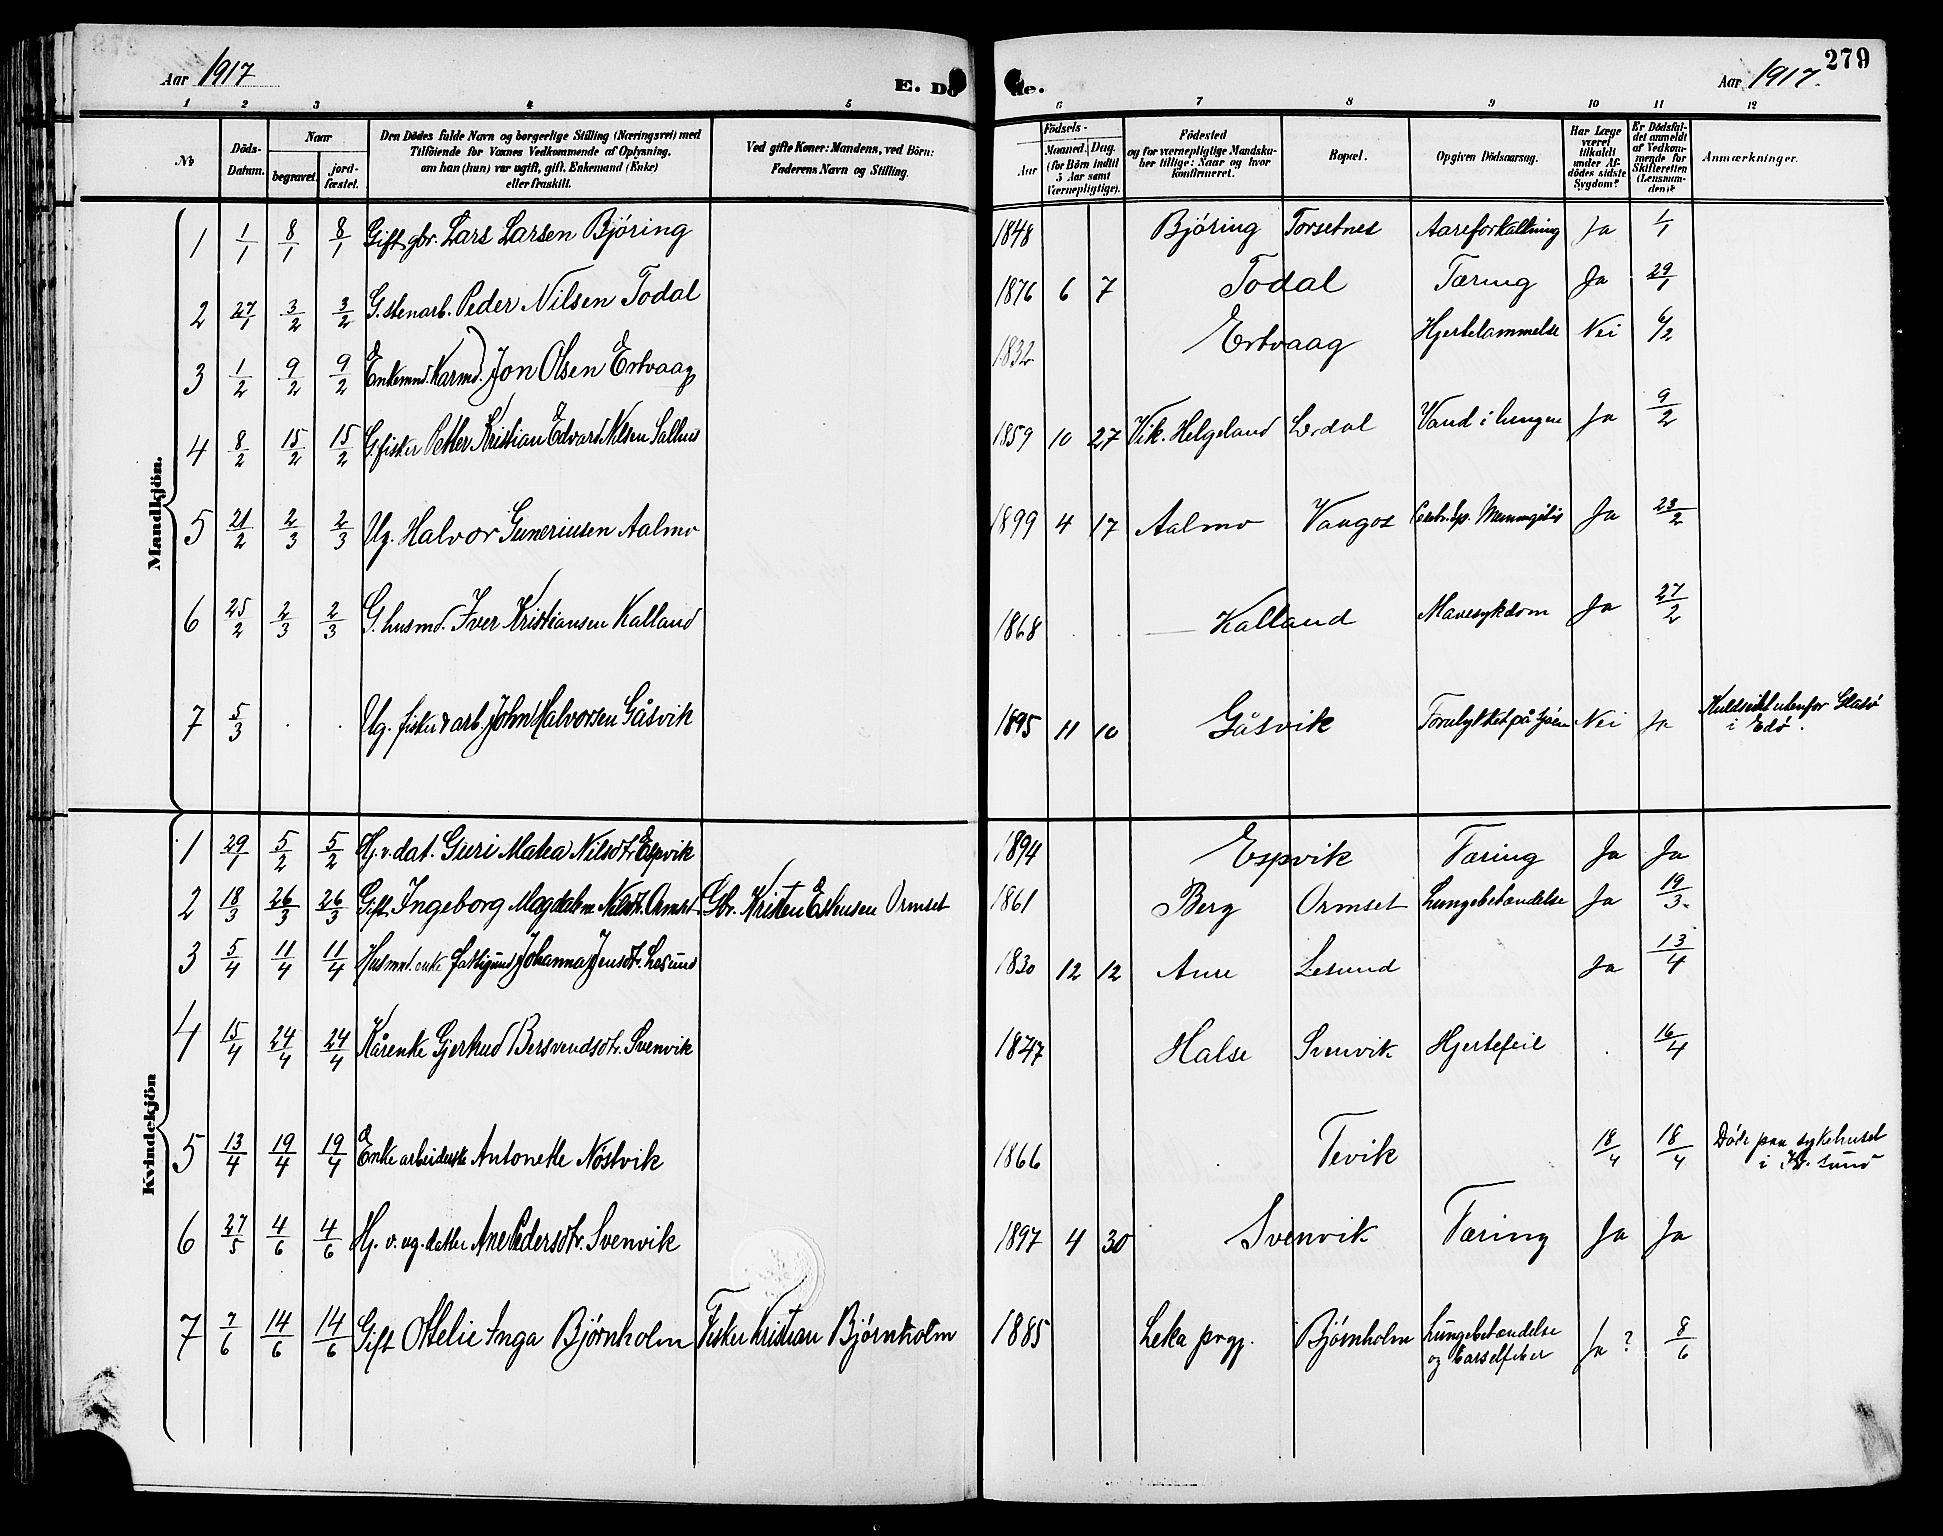 279
Aar 1917
E. Dö
de.
Aar 1917.
1 2 3 4 5 6 7 8 9 10 11 12
No
Döds-
Datum.
Naar
begravet.
jord-
fæstet.
Den Dödes fulde Navn og borgerlige Stilling (Næringsvei) med
Tilföiende for Voxnes Vedkommende af Oplysning,
om han (hun) var ugift, gift, Enkemand (Enke)
eller fraskilt.
Ved gifte Koner: Mandens, ved Börn:
Faderens Navn og Stilling.
Födsels-
Aar
Maaned. Dag.
(for Börn indtil
5 Aar samt
Værnepligtige).
Födested
og for værnepligtige Mandsku-
ber tillige: Naar og hvor
konfirmeret.
Bopæl.
Opgiven Dödsaarsag.
Har Læge
været
tilkaldt
under Af-
dödes sidste
Sygdom?
Er Dödsfal-
det anmeldt
af Vedkom-
mende for
Skifteretten
(Lensman-
den)?
Anmærkninger.
Mandkjön.
1 1/1 8/1 8/1 Gift gbr. Lars Larsen Björing 1848 Björing Torsetnes Aareforkalkning Ja 1/1
2 27/1 3/2 3/2 G. stenarb. Peder Nilsen Todal 1876 6 7 Todal Tæring Ja 29/1
3 1/2 9/2 9/2 Enkemnd. Karmd. Jon Olsen Ertvaag 1832 Ertvaag Hjertelammelse Nei 6/2
4 8/2 15/2 15/2 G. fisker Petter Kristian Edvard Nilsen Salhus 1859 10 27 Vik. Helgeland Lerdal Vand i lungen Ja 9/2
5 21/2 2/3 2/3 Ug. Halvor Guneriusen Aalmo 1899 4 17 Aalmo Vaagos Cerebr. sp. Meningitis Ja 23/2
6 25/2 2/3 2/3 G. husmd. Iver Kristiansen Kalland 1868 Kalland Mavesykdom Ja 27/2
7 5/3 Ug. fisker & arb. John Halvorsen Gåsvik 1895 11 10 Gåsvik Forulykket på sjöen Nei Ja Kuldseilt utenfor
i Edö.
Kvindekjön
1 29/1 5/2 5/2 Hj. v. dat. Guri Malea Nilsdtr. Espvik 1894 Espvik Tæring Ja Ja
2 18/3 26/3 26/3 Gift Ingeborg Magdalene Nilsdtr. Ormset Gbr. Kristen Estensen Ormset 1861 Berg Ormset Lungebetændelse Ja 19/3.
3 5/4 11/4 11/4 Husmd. enke fattigund. Johanna Jensdtr. Lesund 1830 12 12 Aure Lesund Ja 13/4
4 15/4 24/4 24/4 Kårenke Gjertrud Bersvendsdtr. Svenvik 1847 Halse Svenvik Hjertefeil 16/4
5 13/4 19/4 19/4 Enke arbeiderske Antonette Nöstvik 1866 Tevik 18/4 18/4 Döde paa sykehuset
i Kr. sund
6 27/5 4/6 4/6 Hj. v. ug. datter Ane Pedersdtr. Svenvik 1897 4 30 Svenvik Tæring Ja Ja
7 7/6 14/6 14/6 Gift Ottelie Inga Björnholm Fisker Kristian Björnholm 1885 Leka prgj. Björnholm Lungebetændelse Ja ? 8/6
og barselfeber